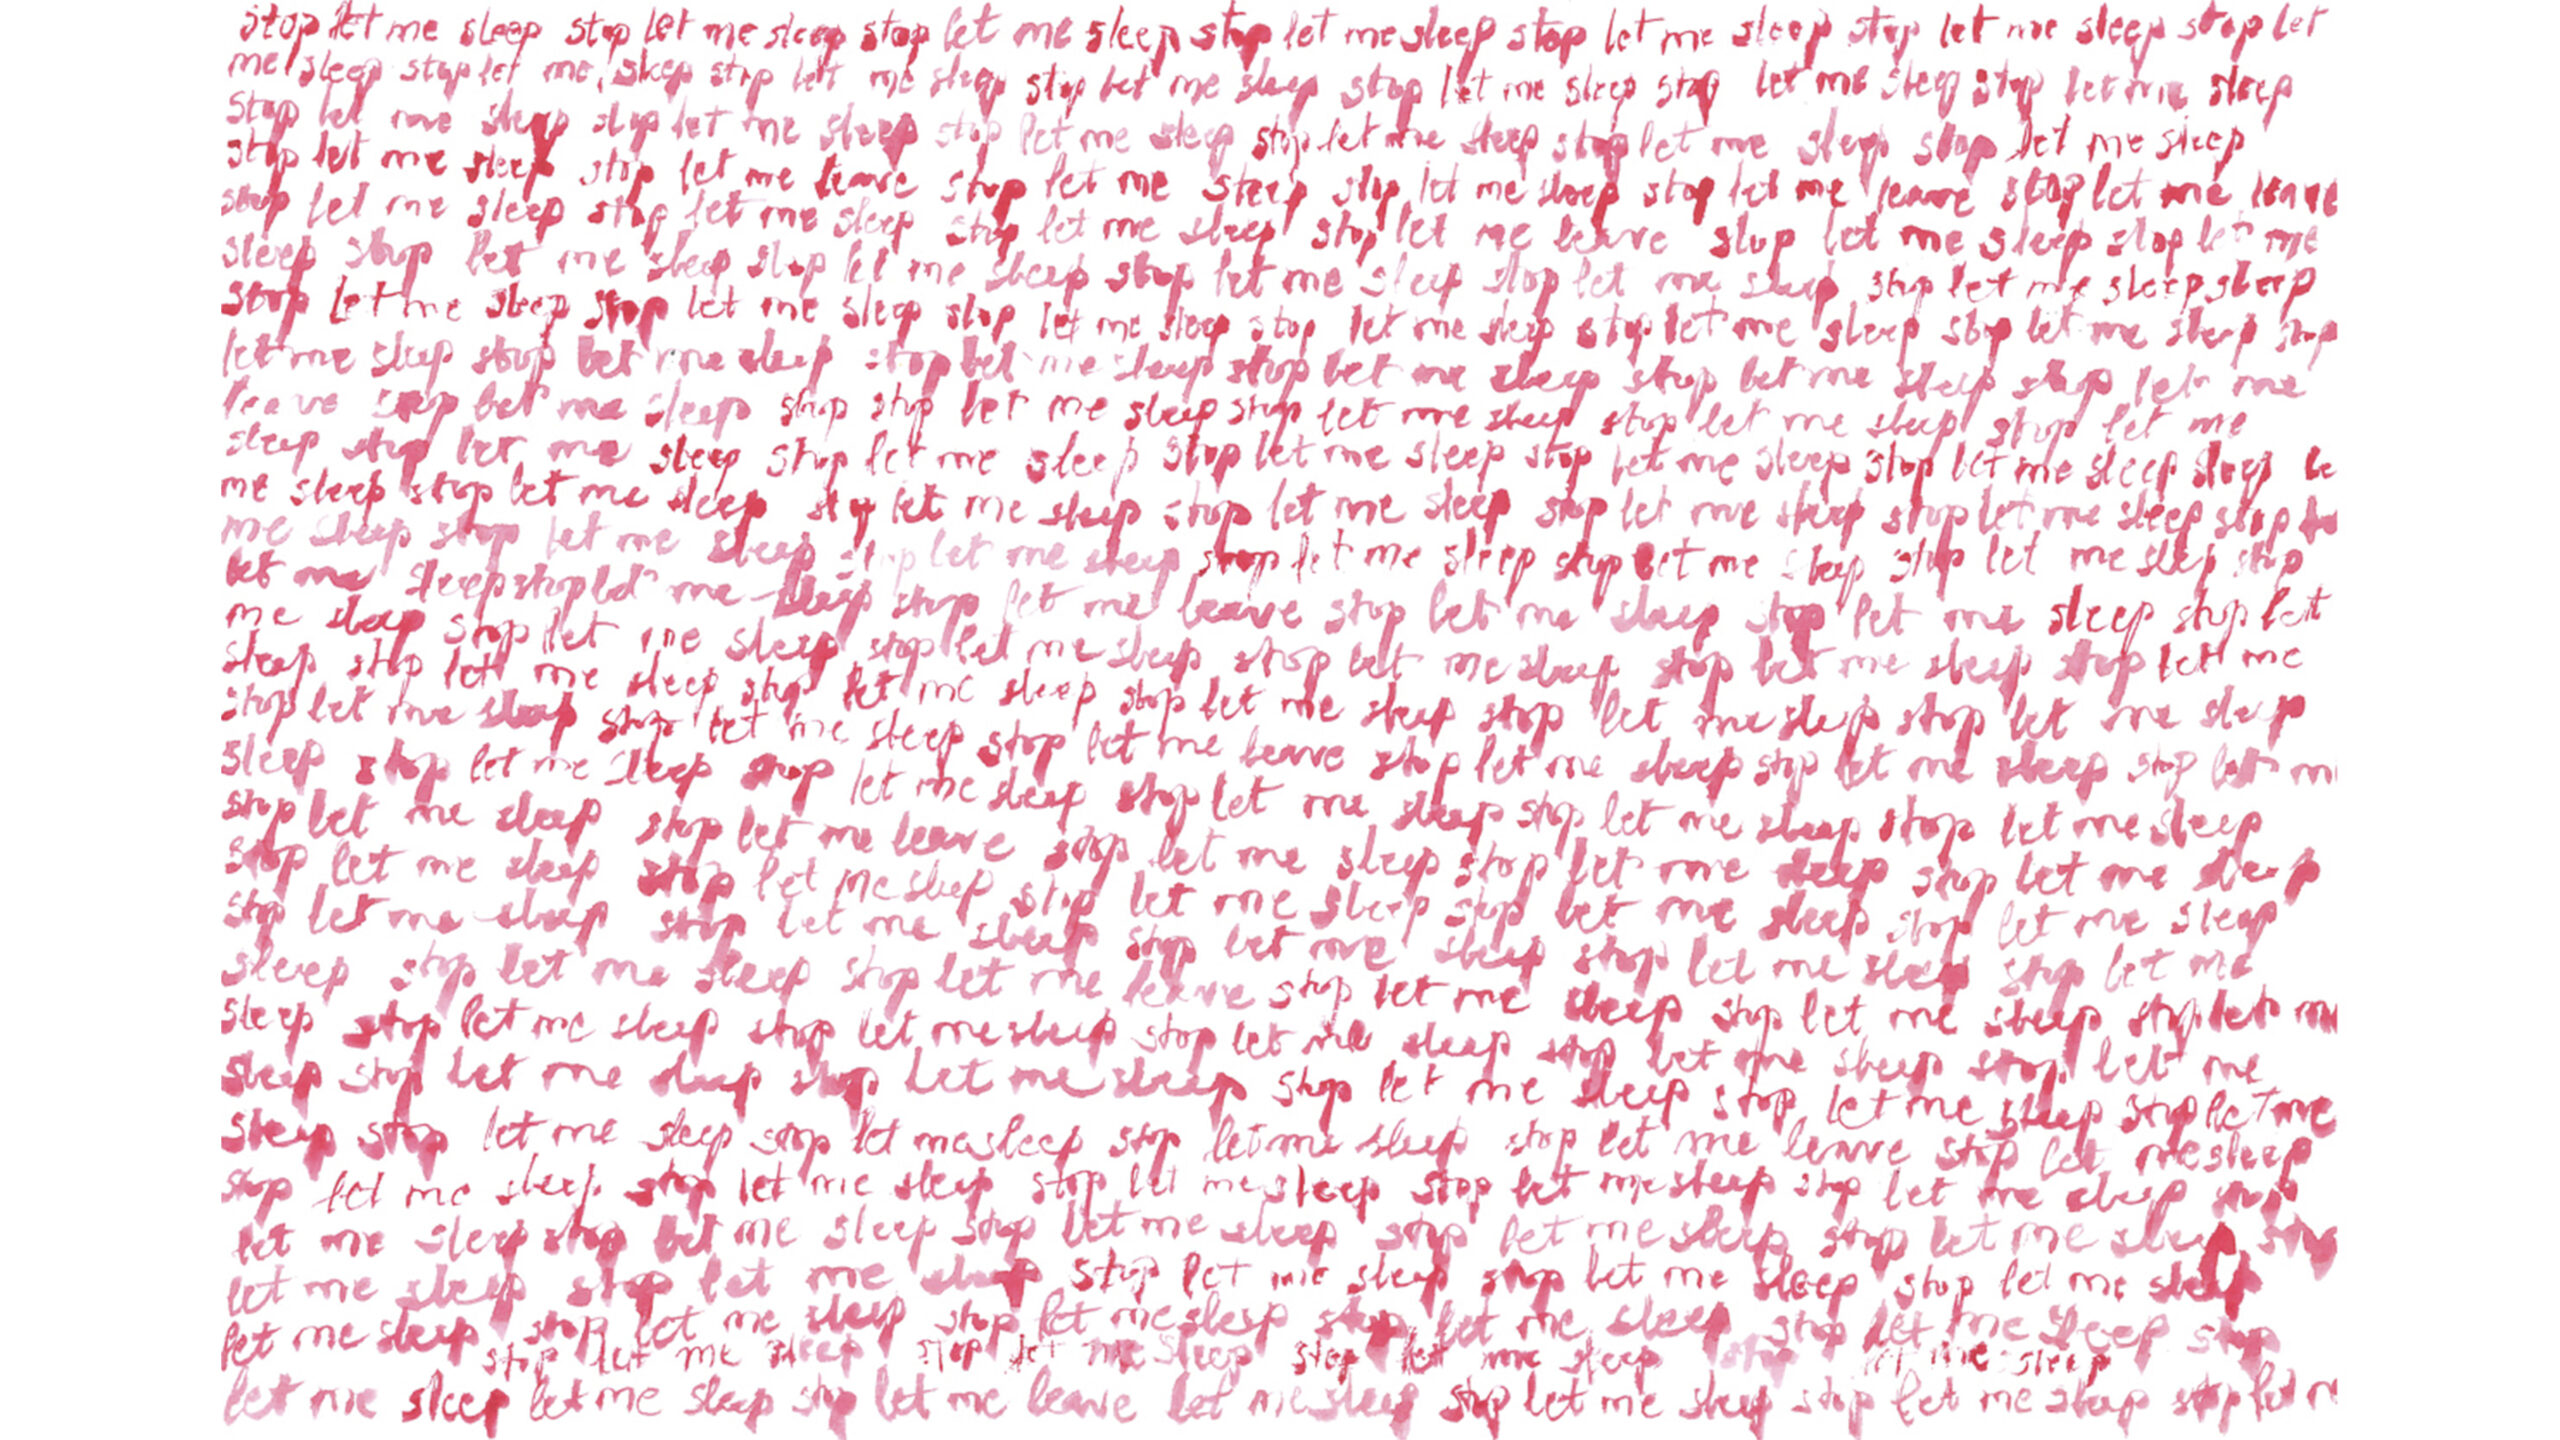 stop let me sleep stop let me sleep stop let me sleep stop let me sleep stop let me sleep stop let me sleep stop let
me sleep stop let me sleep stop let me sleep stop let me sleep stop let me sleep stop let me sleep stop let me sleep
stop let me sleep stop let me sleep stop let me sleep stop let me sleep stop let me sleep stop let me sleep
stop let me sleep stop let me leave stop let me sleep stop let me sleep stop let me leave stop let me leave
stop let me sleep stop let me sleep stop let me sleep stop let me leave stop let me sleep stop let me
sleep stop let me sleep stop let me sleep stop let me sleep stop let me sleep stop let me sleep sleep
stop let me sleep stop let me sleep stop let me sleep stop let me sleep stop let me sleep stop let me sleep stop
let me sleep stop let me sleep stop let me sleep stop let me sleep stop let me sleep stop let me
leave stop let me sleep stop stop let me sleep stop let me sleep stop let me sleep stop let me
sleep stop let me sleep stop let me sleep stop let me sleep stop let me sleep stop let me sleep sleep le
me sleep stop let me sleep stop let me sleep stop let me sleep stop let me sleep stop let me sleep stop
me sleep stop let me sleep stop let me sleep stop let me sleep stop let me sleep stop let me sleep stop
let me sleep stop let me sleep stop let me leave stop let me sleep stop let me sleep stop let
me sleep stop let me sleep stop let me sleep stop let me sleep stop let me sleep stop let me
sleep stop let me sleep stop let me sleep stop let me sleep stop let me sleep stop let me sleep
stop let me sleep stop let me sleep stop let me leave stop let me sleep stop let me sleep stop let m
sleep stop let me sleep stop let me sleep stop let me sleep stop let me sleep stop let me sleep
stop let me sleep stop let me leave stop let me sleep stop let me sleep stop let me sleep
stop let me sleep stop let me sleep stop let me sleep stop let me sleep stop let me sleep
stop let me sleep stop let me sleep stop let me sleep stop let me sleep stop let me
sleep stop let me sleep stop let me leave stop let me sleep stop let me sleep stop let m
sleep stop let me sleep stop let me sleep stop let me sleep stop let me sleep stop let me
sleep stop let me sleep stop let me sleep stop let me sleep stop let me sleep stop let me
sleep stop let me sleep stop let me sleep stop let me sleep stop let me leave stop let me sleep
stop let me sleep stop let me sleep stop let me sleep stop let me sleep stop let me sleep stop
let me sleep stop let me sleep stop let me sleep stop let me sleep stop let me sleep sto
let me sleep stop let me sleep stop let me sleep stop let me sleep stop let me sleep
let me sleep stop let me sleep stop let me sleep stop let me sleep stop let me sleep stop
stop let me sleep stop let me sleep stop let me sleep stop let me sleep
let me sleep let me sleep stop let me leave let me sleep stop let me sleep stop let me sleep stop let m